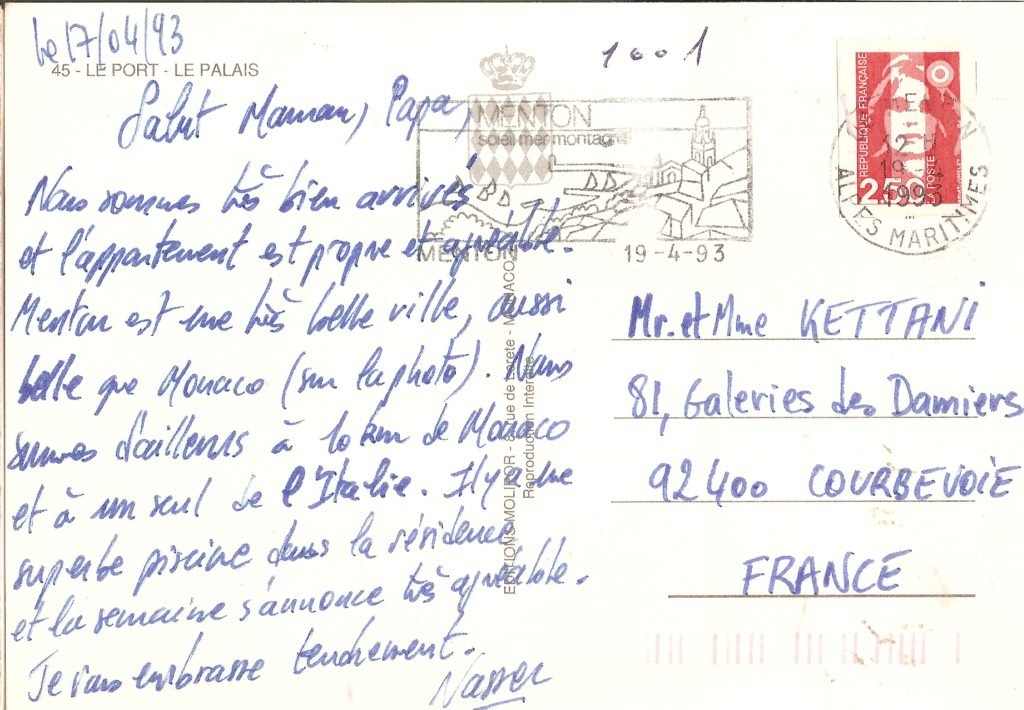 Le 17/04/93
45 - LE PORT - LE PALAIS
Salut Maman, Papa,
Nous sommes très bien arrivés
et l'appartement est propre et agréable.
Menton est une très belle ville, aussi
belle que Monaco (sur la photo). Nous
sommes d'ailleurs à 10 km de Monaco
et à un seul de l'Italie. Il y a une
superbe piscine dans la résidence
et la semaine s'annonce très agréable.
Je vous embrasse tendrement.
Nasser
1001
MENTON
soleil mer montagne
MENTON
19-4-93
EDITIONS MOLIPOR - 8 rue de Lorete - MONACO
Reproduction Interdite
REPUBLIQUE FRANÇAISE
2,50
LA POSTE
MENTON
12 H
19 - 4
1993
ALPES MARITIMES
Mr. et Mme KETTANI
81, Galeries des Damiers
92400 COURBEVOIE
FRANCE